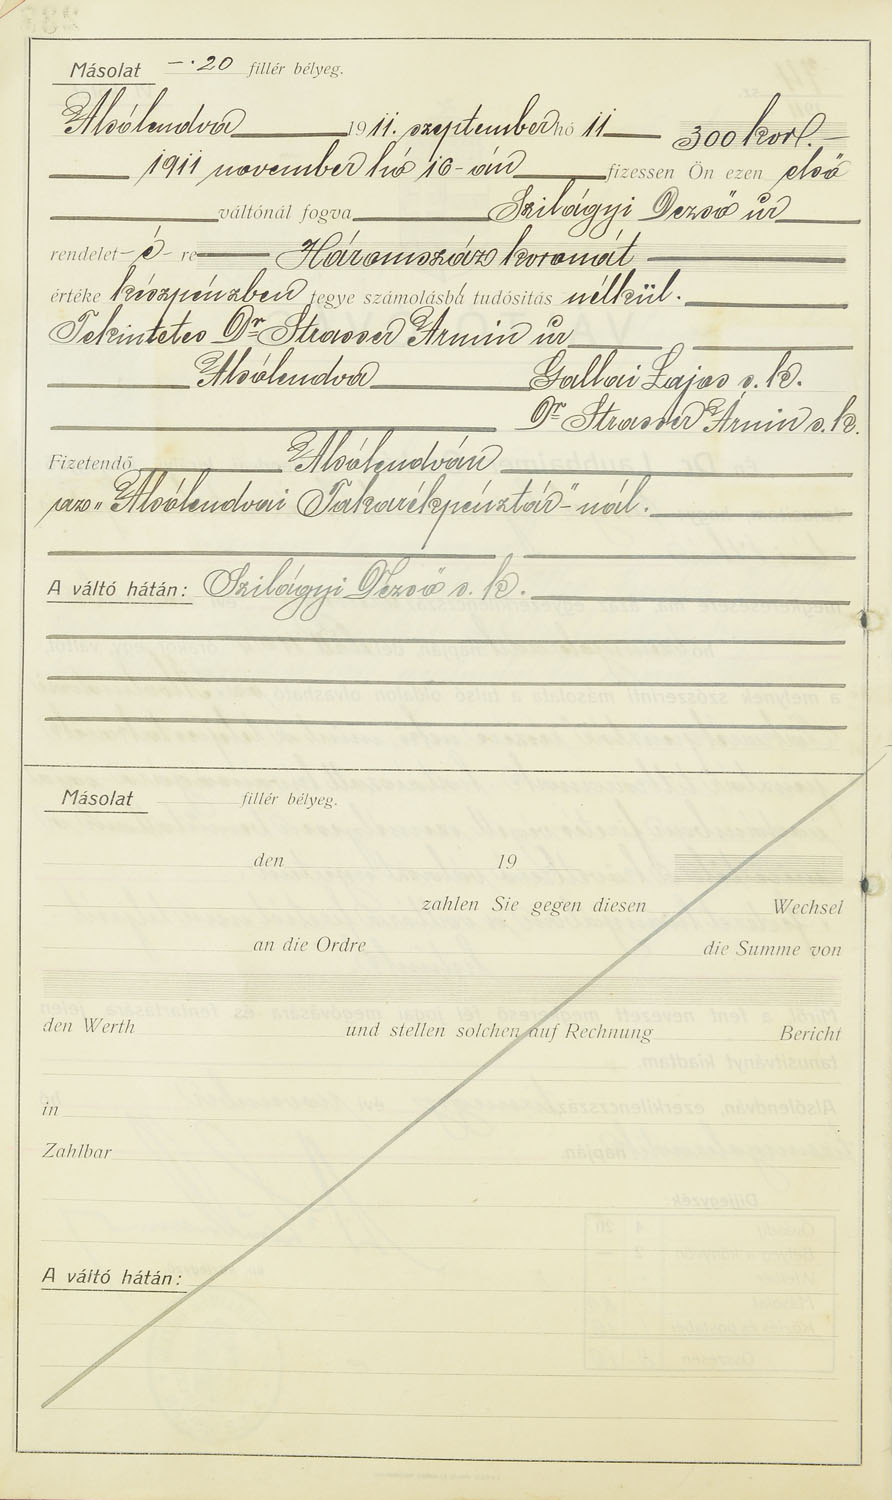 Másolat —·20 fillér bélyeg.
Alsólendva 1911. szeptember hó 11 300 kor.—
1911 november hó 16-án fizessen Ön ezen első
váltónál fogva Szilágyi Dezső úr
rendelet-é-re Háromszáz koronát
értéke készpénzben jegye számolásba tudósitás nélkül.
Tekintetes Dr Strasser Ármin úr
Alsólendva Gallai Lajos s. k.
Dr Strasser Ármin s. k.
Fizetendő Alsólendván
az „Alsólendvai Takarékpénztár"-nál.
A váltó hátán: Szilágyi Dezső s. k.
Másolat fillér bélyeg.
den 19
zahlen Sie gegen diesen Wechsel
an die Ordre die Summe von
den Werth und stellen solchen auf Rechnung Bericht
in
Zahlbar
A váltó hátán: